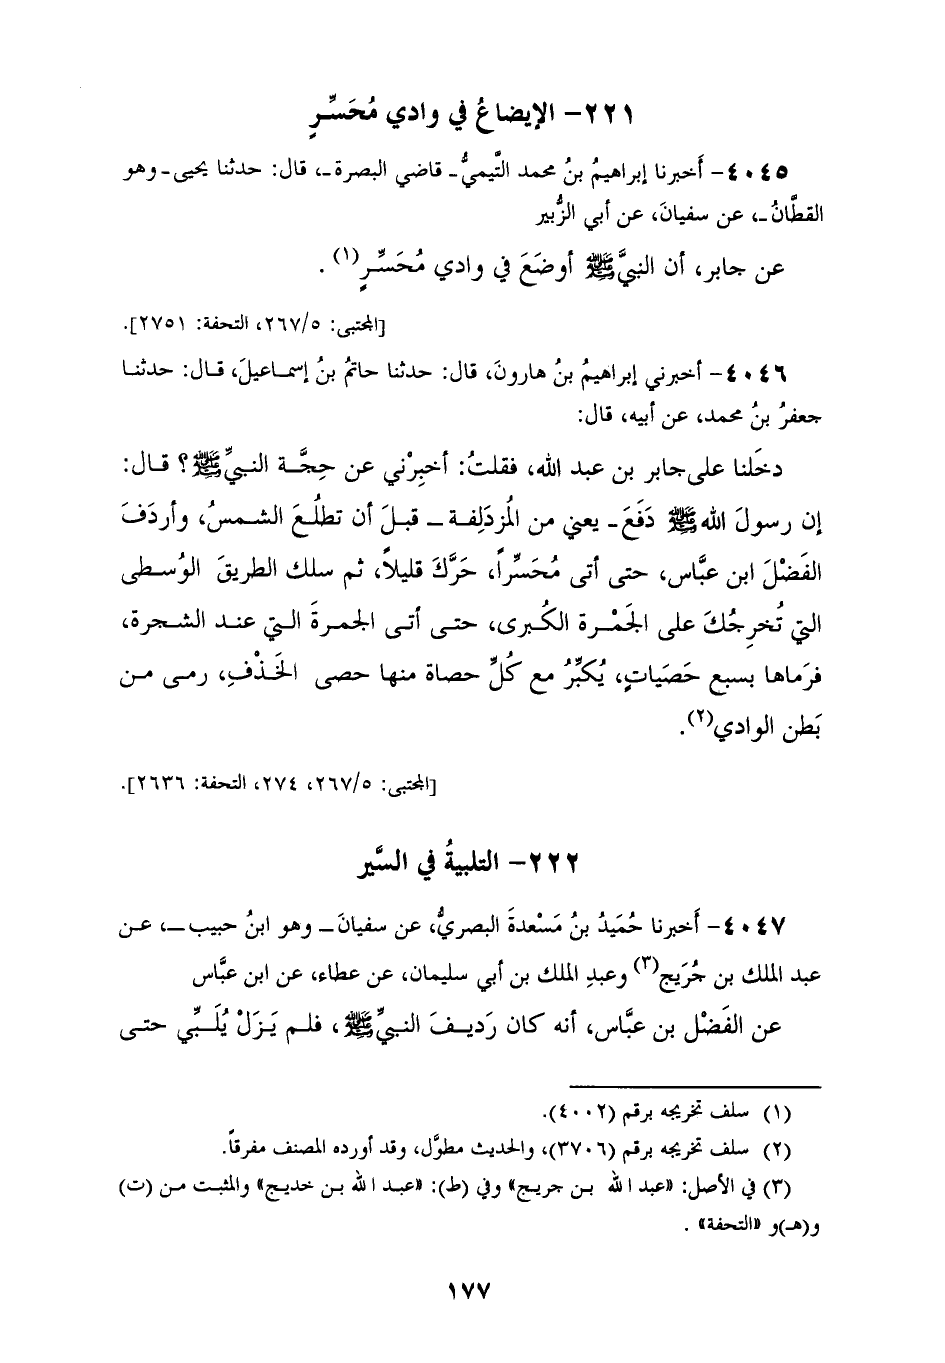 ٢٢١- الإيضاعُ في وادي مُحَسِّرٍ
٤٠٤٥- أَخبرنا إبراهيمُ بنُ محمد التَّيميُّ- قاضي البصرة-، قال: حدثنا يحيى-وهو
القطَّانُ-، عن سفيانَ، عن أبي الزُّبير
عن جابر، أن النبيَّ ﷺ أوضَعَ في وادي مُحَسِّرٍ(١).
[المجتبى: ٢٦٧/٥، التحفة: ٢٧٥١].
٤٠٤٦- أخبرني إبراهيمُ بنُ هارونَ، قال: حدثنا حاتمُ بنُ إسماعيلَ، قال: حدثنا
جعفرُ بنُ محمد، عن أبيه، قال:
دخَلنا على جابر بن عبد الله، فقلتُ: أخبِرْني عن حِجَّة النبيِّ ﷺ؟ قال:
إن رسولَ الله ﷺ دَفَعَ- يعني من المُزدَلِفة- قبلَ أن تطلُعَ الشمسُ، وأردَفَ
الفَضْلَ ابن عبَّاس، حتى أتى مُحَسِّراً، حَرَّكَ قليلاً، ثم سلك الطريقَ الوُسطى
التي تُخرِجُكَ على الجَمْرة الكُبرى، حتى أتى الجمرةَ التي عند الشجرة،
فرَماها بسبع حَصَياتٍ، يُكبِّرُ مع كُلِّ حصاة منها حصى الخَذْفِ، رمى من
بَطن الوادي(٢).
[المجتبى: ٢٦٧/٥، ٢٧٤، التحفة: ٢٦٣٦].
٢٢٢- التلبيةُ في السَّير
٤٠٤٧- أَخبرنا حُمَيدُ بنُ مَسْعدةَ البصريُّ، عن سفيانَ- وهو ابنُ حبيب-، عن
عبد الملك بن جُرَيج(٣) وعبدِ الملك بن أبي سليمان، عن عطاء، عن ابن عبَّاس
عن الفَضْل بن عبَّاس، أنه كان رَديفَ النبيِّ ﷺ، فلم يَزَلْ يُلَبِّي حتى
(١) سلف تخريجه برقم (٤٠٠٢).
(٢) سلف تخريجه برقم (٣٧٠٦)، والحديث مطوَّل، وقد أورده المصنف مفرقاً.
(٣) في الأصل: «عبد الله بن جريج» وفي (ط): «عبد الله بن خديج» والمثبت من (ت)
و(هـ)و «التحفة» .
١٧٧